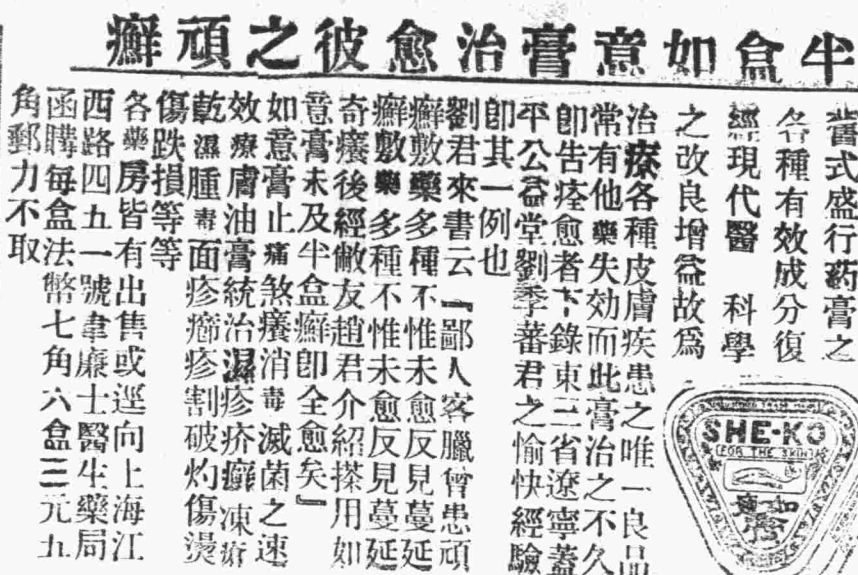 半盒如意膏治愈彼之頑癬
舊式盛行葯膏之
各種有效成分復
經現代醫 科學
之改良增益故爲
治療各種皮膚疾患之唯一良品
常有他藥失効而此膏治之不久
卽告痊愈者下錄東三省遼寧蓋
平公益堂劉季蕃君之愉快經驗
卽其一例也
劉君來書云『鄙人客臘曾患頑
癬敷藥多種不惟未愈反見蔓延
癬敷藥多種不惟未愈反見蔓延
奇癢後經敝友趙君介紹搽用如
意膏未及半盒癬卽全愈矣』
如意膏止痛煞癢消毒滅菌之速
效療膚油膏統治濕疹疥癬凍瘡
乾濕腫毒面疹癤疹割破灼傷燙
傷跌損等等
各藥房皆有出售或逕向上海江
西路四五一號韋廉士醫生藥局
函購每盒法幣七角六盒三元九
角郵力不取
SHE-KO
(FOR THE SKIN)
如意膏